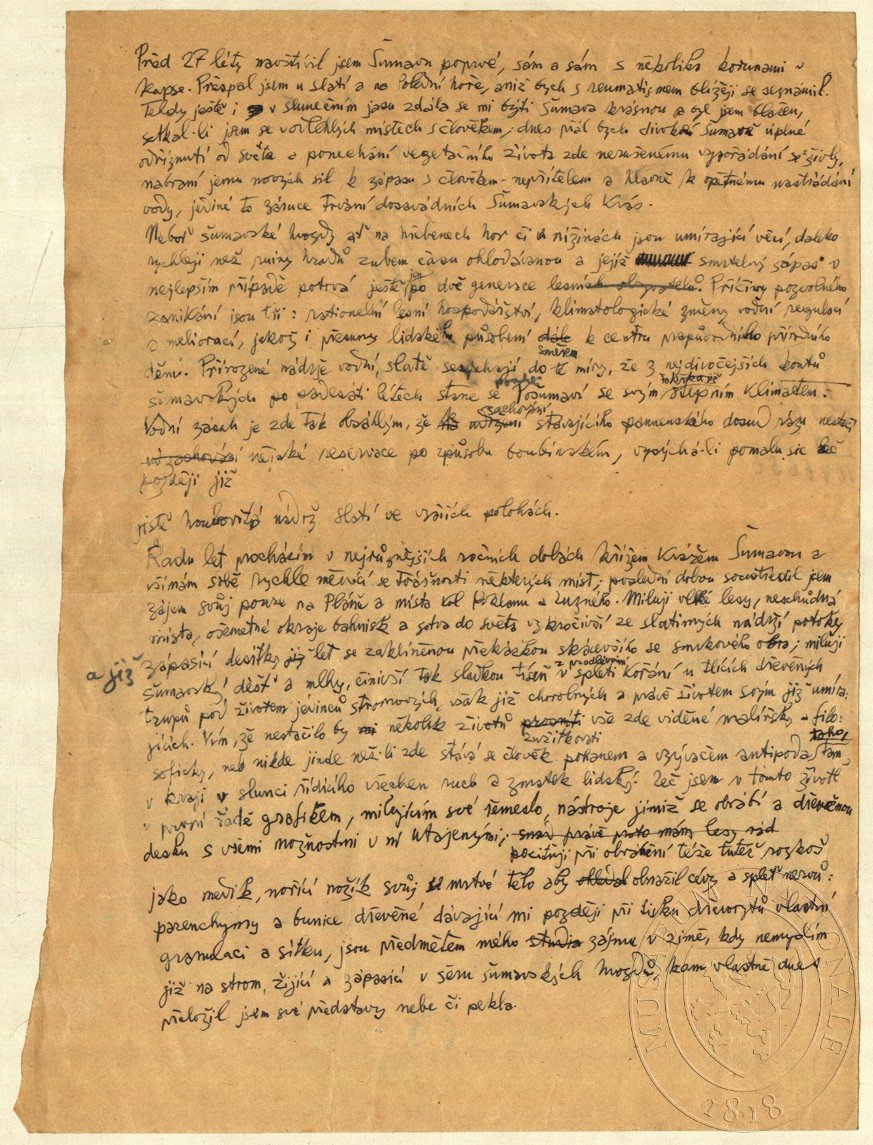 Před 27 léty navštívil jsem Šumavu poprvé, sám a sám s několika korunami v
kapse. Přespal jsem u slatí a na Polední hoře, aniž bych s reumatismem blížeji se seznámil.
Tehdy ještě i v slunečním jasu zdála se mi býti Šumava krásnou a byl jsem blažen,
setkal-li jsem se v odlehlých místech s člověkem; dnes přál bych divoké Šumavě úplné
odříznutí od světa a ponechání vegetačního života zde nerušenému uspořádání živly,
nabraní jemu nových sil k zápasu s člověkem-nepřítelem a hlavně k opětnému nastřádání
vody, jediné to záruce trvání dosavádních Šumavských krás.
Neboť šumavské hvozdy ať na hřebenech hor či v nížinách jsou umírající věcí, daleko
rychleji než ruiny hradů zubem času ohlodávanou a jejíž smrtelný zápas v
nejlepším případě potrvá ještě po dvě generace lesních obyvatelů. Příčiny pozvolného
zanikání jsou tři: rationelní lesní hospodářství, klimatologické změny vodní regulací
a meliorací, jakož i přesuny lidského působení dále k centru prapůvodního přírodního
směrem
dění. Přirozené nádrže vodní, slatě sesychají do té míry, že z nejdivočejších koutů
šumavských po padesáti létech stane se Pošumaví se svým stepním klimatem.
zachování
Vodní zásah je zde tak obsáhlým, že stávajícího panenského dosud rázu
nějaké reservace po způsobu boubínském, vysychá-li pomalu sic
později již
jistě houbovitá nádrž slatí ve vyšších polohách.
Řadu let procházím v nejrůznějších ročních dobách křížem krážem Šumavou a
všímám sobě rychle měnící se tvářnosti některých míst; poslední dobou soustředil jsem
zájem svůj pouze na Pláně a místa kol Roklanu a Luzného. Miluji velké lesy, neschůdná
místa, ošemetné okraje bahnisk a sotva do světa vykročivší ze slatinných nádrží potoky
a již
zápasící desítky let se zaklíněnou překážkou skácevšího se smrkového obra; miluji
šumavský déšť a mlhy, činivší tak sladkou tíseň v spleti kořání u tlících dřevěných
trupů pod životem jedinců stromových, však již chorobných a právě životem svým již umíra-
jících. Vím, že nestačilo by několik životů vše zde viděné malířsky a filo-
zužitkovati
toho,
soficky, neb nikde jinde než-li zde stává se člověk pohanem a vzývačem antipoda tam,
v kraji v slunci řídícího všechen ruch a zmatek lidský. Leč jsem v tomto životě
v první řadě grafikem, milujícím své řemeslo, nástroje jimiž se obrábí a dřevěnou
desku s všemi možnostmi v ní utajenými; snad právě proto mám lesy rád
pociťuji při obrábění téže tutéž rozkoš
jako medik, nořící nožík svůj v mrtvé tělo aby obnažil cévy a spleť nervů:
parenchymy a bunice dřevěné dávající mi později při tisku dřevorytů vlastní
granulaci a síťku, jsou předmětem mého studia zájmu v zimě, kdy nemyslím
již na strom, žijící a zápasící v šeru šumavských hvozdů, kam vlastně dnes
přeložil jsem své představy nebe či pekla.
MUSEUM NATIONALE
1818